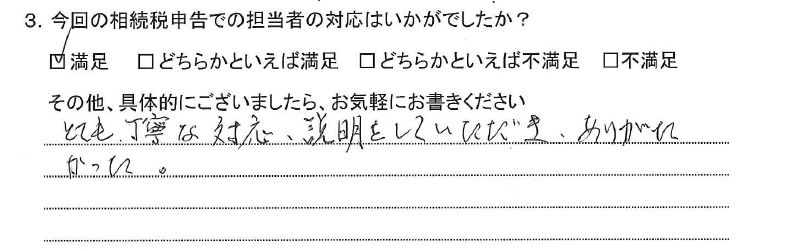 3. 今回の相続税申告での担当者の対応はいかがでしたか？
☑満足 □どちらかといえば満足 □どちらかといえば不満足 □不満足
その他、具体的にございましたら、お気軽にお書きください
とても丁寧な対応、説明をしていただき、ありがた
かった。